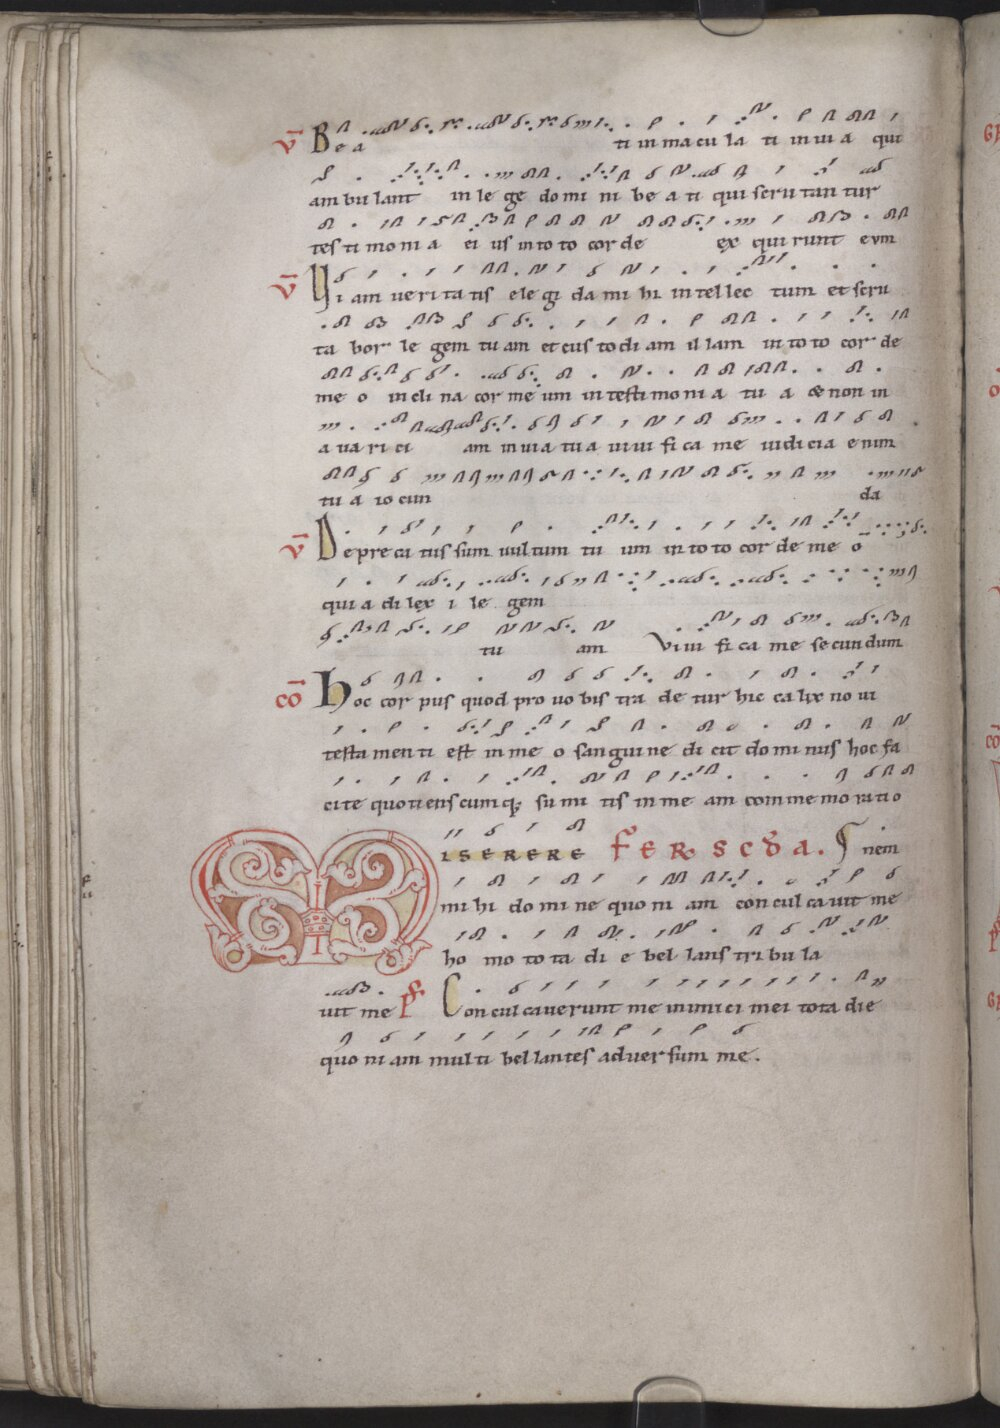 v̄ Be a ti in ma cu la ti in ui a qui
am bu lant in le ge do mi ni be a ti qui scru tan tur
tes ti mo ni a ei us in to to cor de ex qui runt eum
v̄ Ui am ue ri ta tis ele gi da mi hi in tel lec tum et scru
ta bor le gem tu am et cus to di am il lam in to to cor de
me o in cli na cor me um in testi mo ni a tu a & non in
a ua ri ci am in uia tu a ui ui fi ca me iudicia enim
tu a io cun da
v̄ De pre ca tus sum uul tum tu um in to to cor de me o
qui a di lex i le gem
tu am Vi ui fi ca me se cun dum
cō Hoc cor pus quod pro uo bis tra de tur hic ca lix no ui
testa men ti est in me o san gui ne di cit do mi nus hoc fa
ci te quo ti ens cum q; su mi tis in me am com me mo ra ti o
MISERERE FER SCDA. nem
mi hi do mi ne quo ni am con cul ca uit me
ho mo to ta di e bel lans tri bu la
uit me Ps Conculcauerunt me inimici mei tota die
quo ni am mul ti bel lan tes aduer sum me.